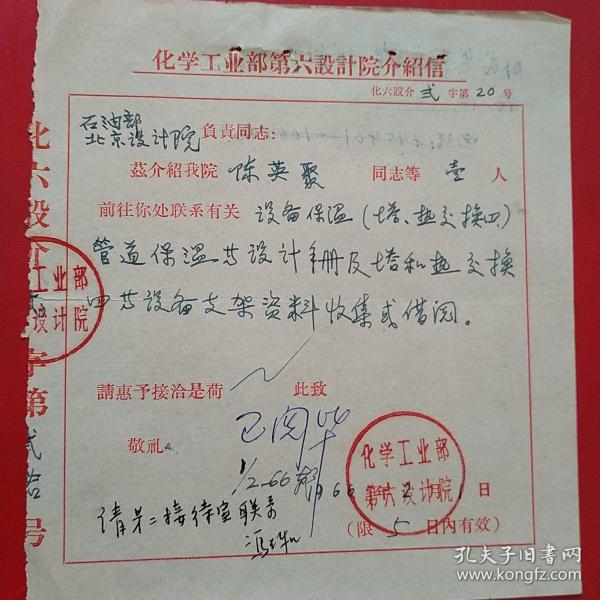 化学工业部第六設計院介紹信
化六設介 弍 字第 20 号
石油部
北京设计院 負責同志：
茲介紹我院 陈英聚 同志等 壹 人
前往你处联系有关 设备保温（塔、热交换四）
管道保温 设计手册及塔和热交换
四 设备支架资料收集或借阅。
請惠予接洽是荷 此致
敬礼
已阅
1/2-66
66 年 2 月 日
（限 5 日内有效）
请 二接待室联系
化学工业部
第六设计院
化六設介 字第 弍拾 号
工业部
设计院
孔夫子旧书网
www.kongfz.com